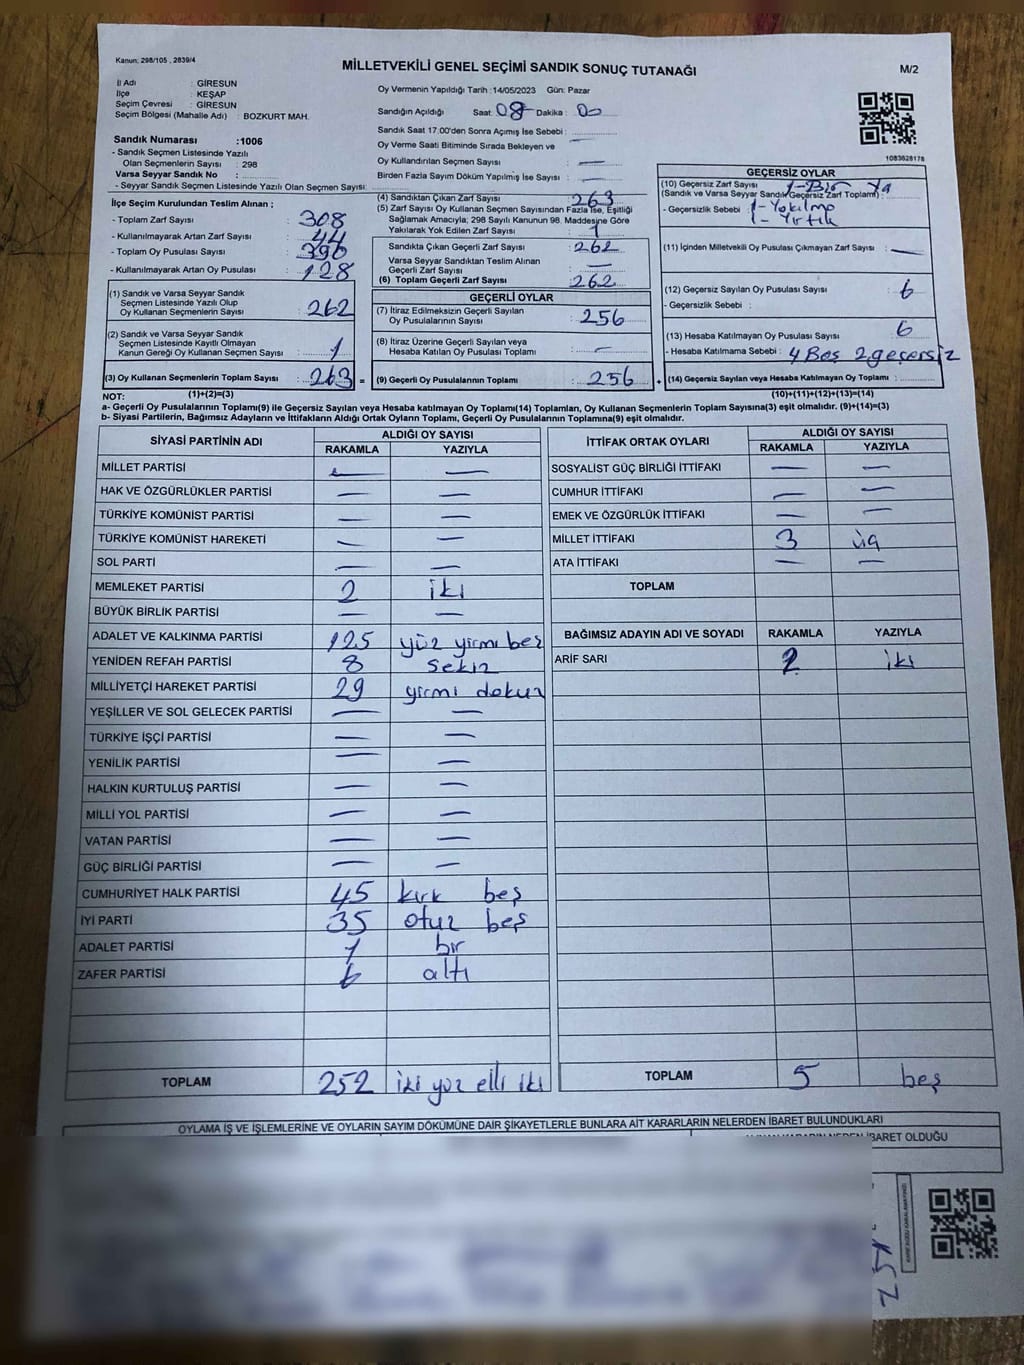 Kanun: 298/105 , 2839/4
MİLLETVEKİLİ GENEL SEÇİMİ SANDIK SONUÇ TUTANAĞI
M/2
İl Adı : GİRESUN
İlçe : KEŞAP
Seçim Çevresi : GİRESUN
Seçim Bölgesi (Mahalle Adı) : BOZKURT MAH.
Oy Vermenin Yapıldığı Tarih :14/05/2023 Gün: Pazar
Sandığın Açıldığı Saat: 08 Dakika : 00
Sandık Saat 17.00'den Sonra Açımış İse Sebebi :
Oy Verme Saati Bitiminde Sırada Bekleyen ve
Oy Kullandırılan Seçmen Sayısı : —
Birden Fazla Sayım Döküm Yapılmış İse Sayısı : —
1083828178
Sandık Numarası :1006
- Sandık Seçmen Listesinde Yazılı
Olan Seçmenlerin Sayısı : 298
Varsa Seyyar Sandık No :
- Seyyar Sandık Seçmen Listesinde Yazılı Olan Seçmen Sayısı:
İlçe Seçim Kurulundan Teslim Alınan ;
- Toplam Zarf Sayısı : 308
- Kullanılmayarak Artan Zarf Sayısı : 44
- Toplam Oy Pusulası Sayısı : 390
- Kullanılmayarak Artan Oy Pusulası : 128
(1) Sandık ve Varsa Seyyar Sandık
Seçmen Listesinde Yazılı Olup
Oy Kullanan Seçmenlerin Sayısı : 262
(2) Sandık ve Varsa Seyyar Sandık
Seçmen Listesinde Kayıtlı Olmayan
Kanun Gereği Oy Kullanan Seçmen Sayısı : 1
(3) Oy Kullanan Seçmenlerin Toplam Sayısı : 263 =
(1)+(2)=(3)
(4) Sandıktan Çıkan Zarf Sayısı : 263
(5) Zarf Sayısı Oy Kullanan Seçmen Sayısından Fazla İse, Eşitliği
Sağlamak Amacıyla; 298 Sayılı Kanunun 98. Maddesine Göre
Yakılarak Yok Edilen Zarf Sayısı : 1
Sandıkta Çıkan Geçerli Zarf Sayısı : 262
Varsa Seyyar Sandıktan Teslim Alınan
Geçerli Zarf Sayısı : —
(6) Toplam Geçerli Zarf Sayısı : 262
GEÇERLİ OYLAR
(7) İtiraz Edilmeksizin Geçerli Sayılan
Oy Pusulalarının Sayısı : 256
(8) İtiraz Üzerine Geçerli Sayılan veya
Hesaba Katılan Oy Pusulası Toplamı : —
(9) Geçerli Oy Pusulalarının Toplamı : 256 +
GEÇERSİZ OYLAR
(10) Geçersiz Zarf Sayısı
(Sandık ve Varsa Seyyar Sandık Geçersiz Zarf Toplamı) :
- Geçersizlik Sebebi : 1- Yakılma
1- Yırtık
(11) İçinden Milletvekili Oy Pusulası Çıkmayan Zarf Sayısı : —
(12) Geçersiz Sayılan Oy Pusulası Sayısı : 6
- Geçersizlik Sebebi :
(13) Hesaba Katılmayan Oy Pusulası Sayısı : 6
- Hesaba Katılmama Sebebi : 4 Boş 2 geçersiz
(14) Geçersiz Sayılan veya Hesaba Katılmayan Oy Toplamı :
(10)+(11)+(12)+(13)=(14)
NOT:
a- Geçerli Oy Pusulalarının Toplamı(9) ile Geçersiz Sayılan veya Hesaba katılmayan Oy Toplamı(14) Toplamları, Oy Kullanan Seçmenlerin Toplam Sayısına(3) eşit olmalıdır. (9)+(14)=(3)
b- Siyasi Partilerin, Bağımsız Adayların ve İttifakların Aldığı Ortak Oyların Toplamı, Geçerli Oy Pusulalarının Toplamına(9) eşit olmalıdır.
SİYASİ PARTİNİN ADI ALDIĞI OY SAYISI
RAKAMLA YAZIYLA
MİLLET PARTİSİ — —
HAK VE ÖZGÜRLÜKLER PARTİSİ — —
TÜRKİYE KOMÜNİST PARTİSİ — —
TÜRKİYE KOMÜNİST HAREKETİ — —
SOL PARTİ — —
MEMLEKET PARTİSİ 2 iki
BÜYÜK BİRLİK PARTİSİ — —
ADALET VE KALKINMA PARTİSİ 125 yüz yirmi beş
YENİDEN REFAH PARTİSİ 8 sekiz
MİLLİYETÇİ HAREKET PARTİSİ 29 yirmi dokuz
YEŞİLLER VE SOL GELECEK PARTİSİ — —
TÜRKİYE İŞÇİ PARTİSİ — —
YENİLİK PARTİSİ — —
HALKIN KURTULUŞ PARTİSİ — —
MİLLİ YOL PARTİSİ — —
VATAN PARTİSİ — —
GÜÇ BİRLİĞİ PARTİSİ — —
CUMHURİYET HALK PARTİSİ 45 kırk beş
İYİ PARTİ 35 otuz beş
ADALET PARTİSİ 1 bir
ZAFER PARTİSİ 6 altı
TOPLAM 252 iki yüz elli iki
İTTİFAK ORTAK OYLARI ALDIĞI OY SAYISI
RAKAMLA YAZIYLA
SOSYALİST GÜÇ BİRLİĞİ İTTİFAKI — —
CUMHUR İTTİFAKI — —
EMEK VE ÖZGÜRLÜK İTTİFAKI — —
MİLLET İTTİFAKI 3 üç
ATA İTTİFAKI — —
TOPLAM
BAĞIMSIZ ADAYIN ADI VE SOYADI RAKAMLA YAZIYLA
ARİF SARI 2 iki
TOPLAM 5 beş
OYLAMA İŞ VE İŞLEMLERİNE VE OYLARIN SAYIM DÖKÜMÜNE DAİR ŞİKAYETLERLE BUNLARA AİT KARARLARIN NELERDEN İBARET BULUNDUKLARI
İBARET OLDUĞU